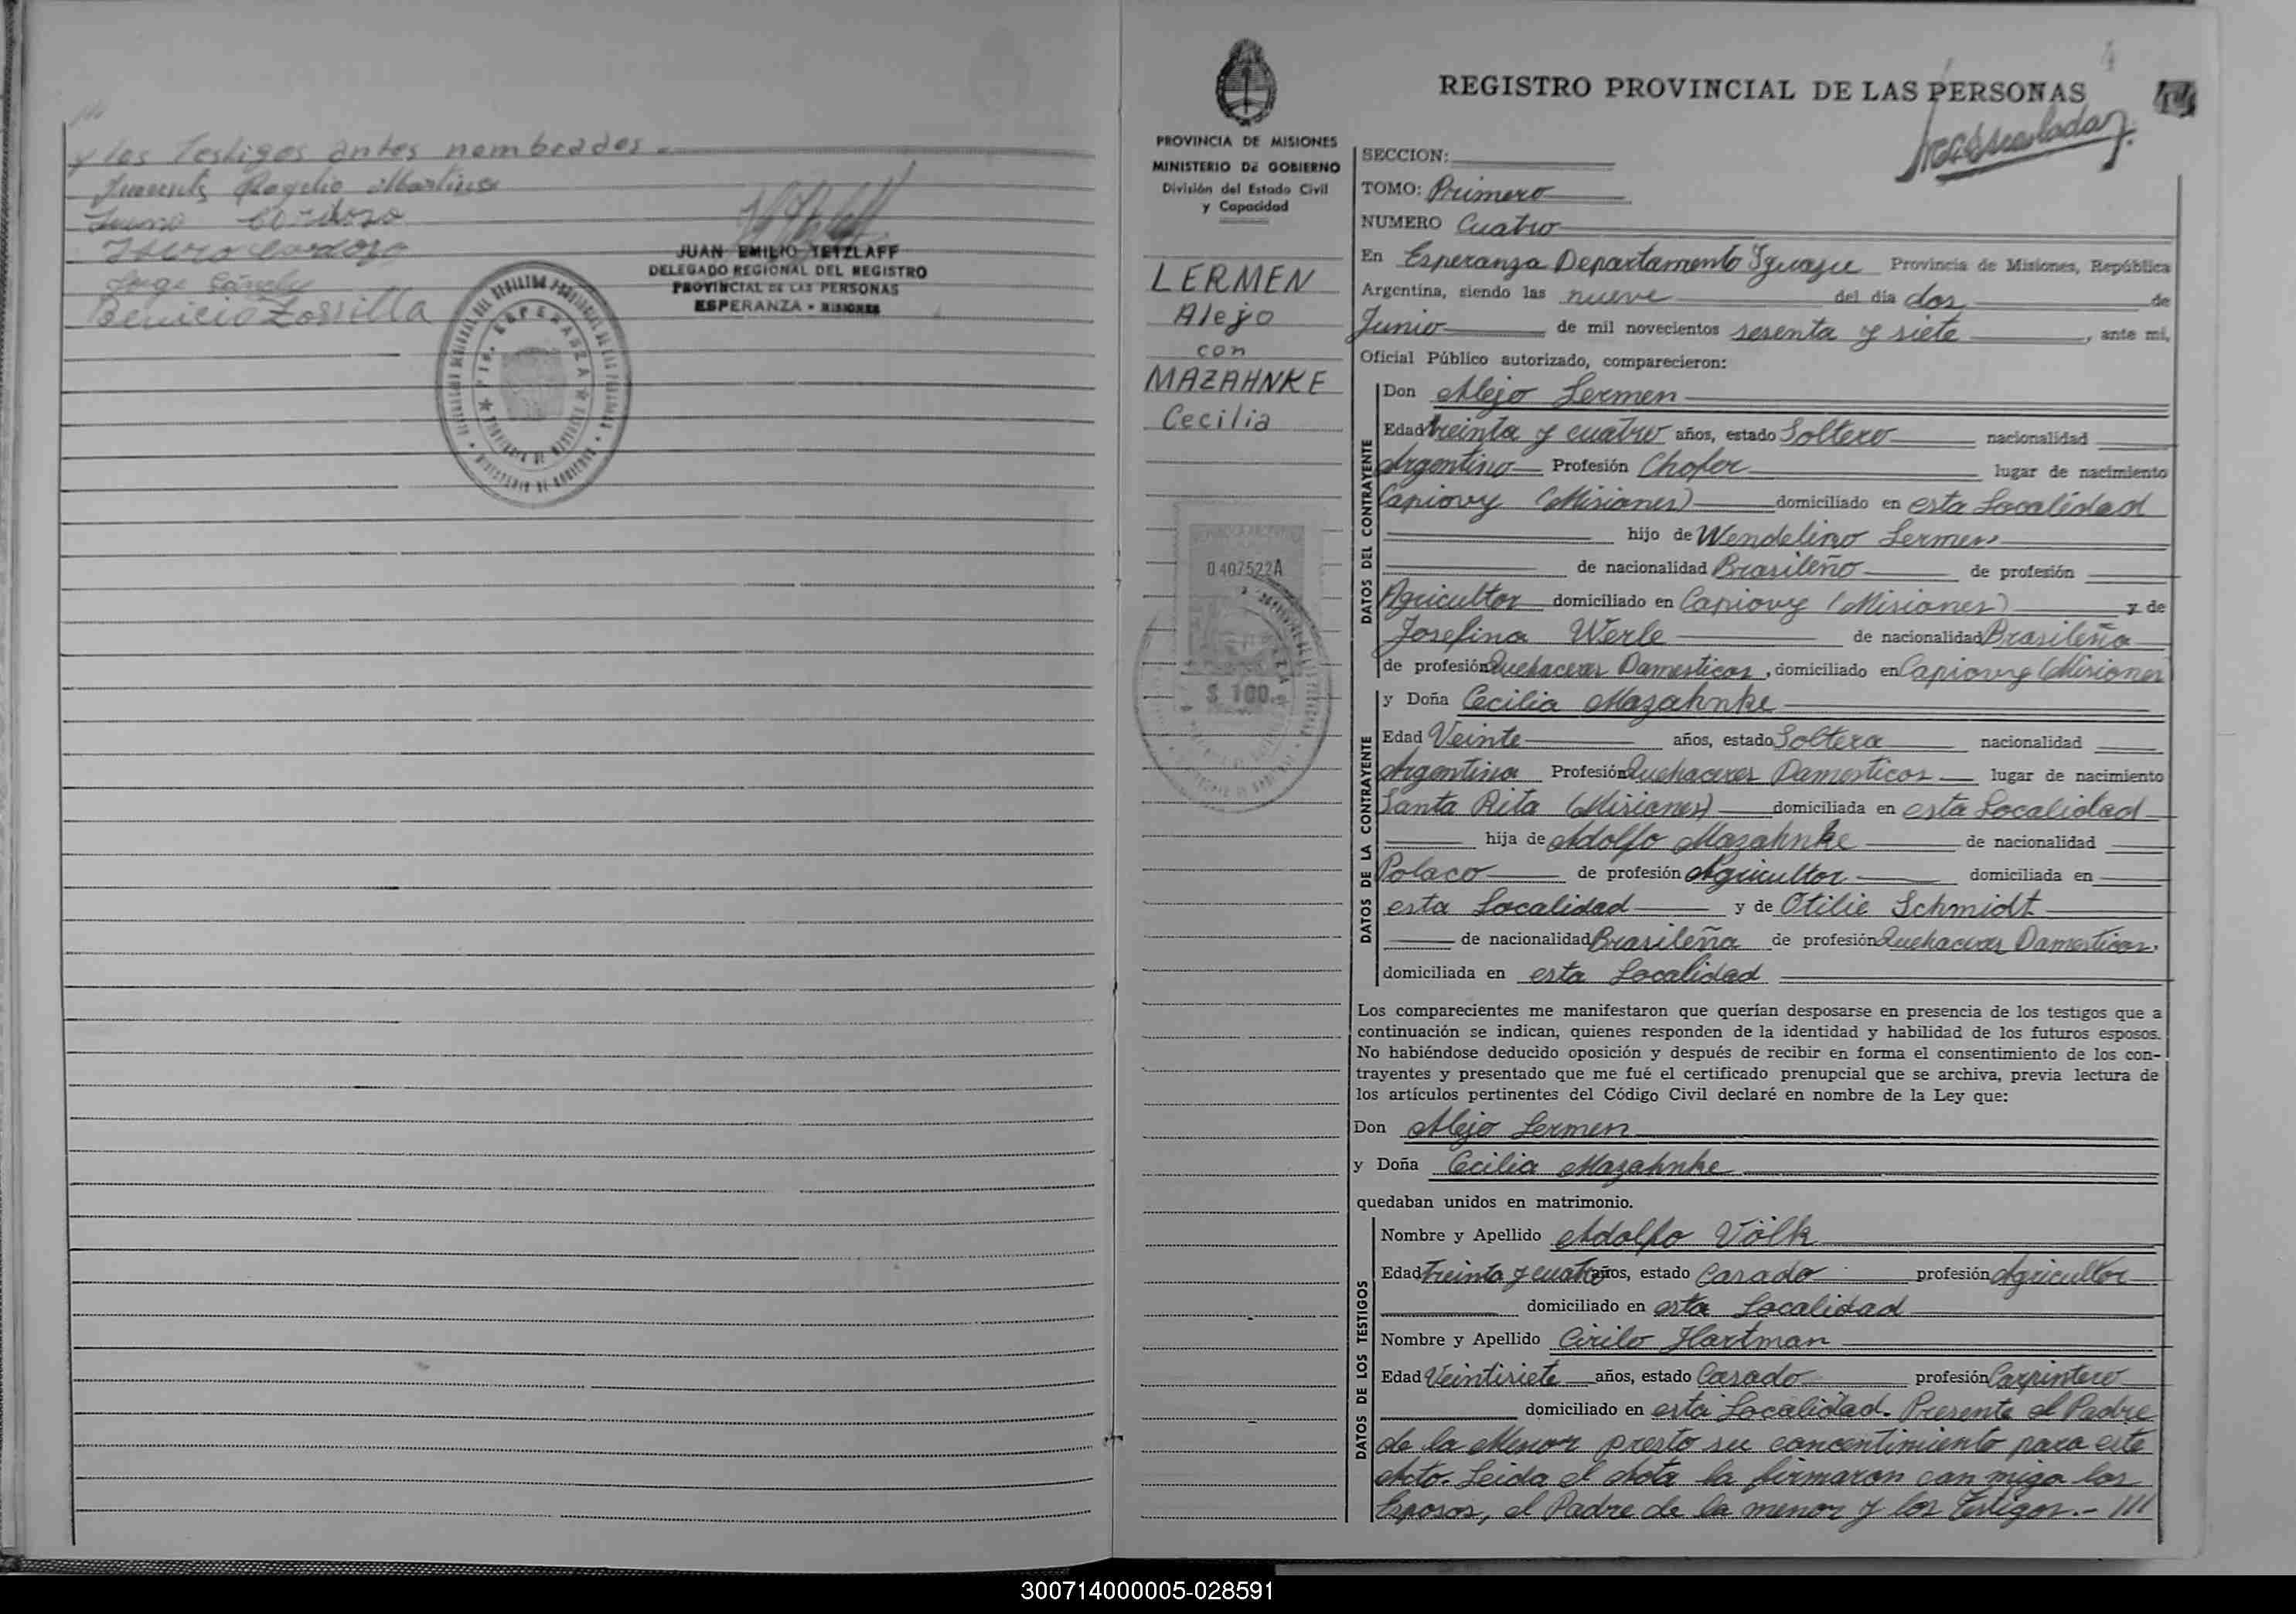 y los Testigos antes nombrados.
Rogelio Martinez
Cardozo
Cardozo
Jorge
Benicio Zorrilla
JUAN EMILIO TETZLAFF
DELEGADO REGIONAL DEL REGISTRO
PROVINCIAL DE LAS PERSONAS
ESPERANZA - MISIONES
PROVINCIA DE MISIONES
MINISTERIO DE GOBIERNO
División del Estado Civil
y Capacidad
LERMEN
Alejo
con
MAZAHNKE
Cecilia
0407522A
$ 100
REGISTRO PROVINCIAL DE LAS PERSONAS
SECCION:
TOMO: Primero
NUMERO Cuatro
En Esperanza Departamento Iguazu Provincia de Misiones, República
Argentina, siendo las nueve del día dos de
Junio de mil novecientos sesenta y siete, ante mi,
Oficial Público autorizado, comparecieron:
DATOS DEL CONTRAYENTE
Don Alejo Lermen
Edad treinta y cuatro años, estado Soltero nacionalidad
Argentino Profesión Chofer lugar de nacimiento
Capiovy (Misiones) domiciliado en esta Localidad
hijo de Wendelino Lermen
de nacionalidad Brasileño de profesión
Agricultor domiciliado en Capiovy (Misiones) y de
Josefina Werle de nacionalidad Brasileña
de profesión Quehaceres Damesticos, domiciliado en Capiovy (Misiones
DATOS DE LA CONTRAYENTE
y Doña Cecilia Mazahnke
Edad Veinte años, estado Soltera nacionalidad
Argentina Profesión Quehaceres Damesticos lugar de nacimiento
Santa Rita (Misiones) domiciliada en esta Localidad
hija de Adolfo Mazahnke de nacionalidad
Polaco de profesión Agricultor domiciliada en
esta Localidad y de Otilie Schmidt
de nacionalidad Brasileña de profesión Quehaceres Damesticos.
domiciliada en esta Localidad
Los comparecientes me manifestaron que querían desposarse en presencia de los testigos que a
continuación se indican, quienes responden de la identidad y habilidad de los futuros esposos.
No habiéndose deducido oposición y después de recibir en forma el consentimiento de los con-
trayentes y presentado que me fué el certificado prenupcial que se archiva, previa lectura de
los artículos pertinentes del Código Civil declaré en nombre de la Ley que:
Don Alejo Lermen
y Doña Cecilia Mazahnke
quedaban unidos en matrimonio.
DATOS DE LOS TESTIGOS
Nombre y Apellido Adolfo Völk
Edad Treinta y cuatro años, estado Casado profesión Agricultor
domiciliado en esta Localidad
Nombre y Apellido Cirilo Hartman
Edad Veintisiete años, estado Casado profesión Carpintero
domiciliado en esta Localidad. Presente el Padre
de la Menor presto su concentimiento para este
Acto. Leida el Acta la firmaron con migo los
Esposos, el Padre de la menor y los Testigos.- ///
300714000005-028591